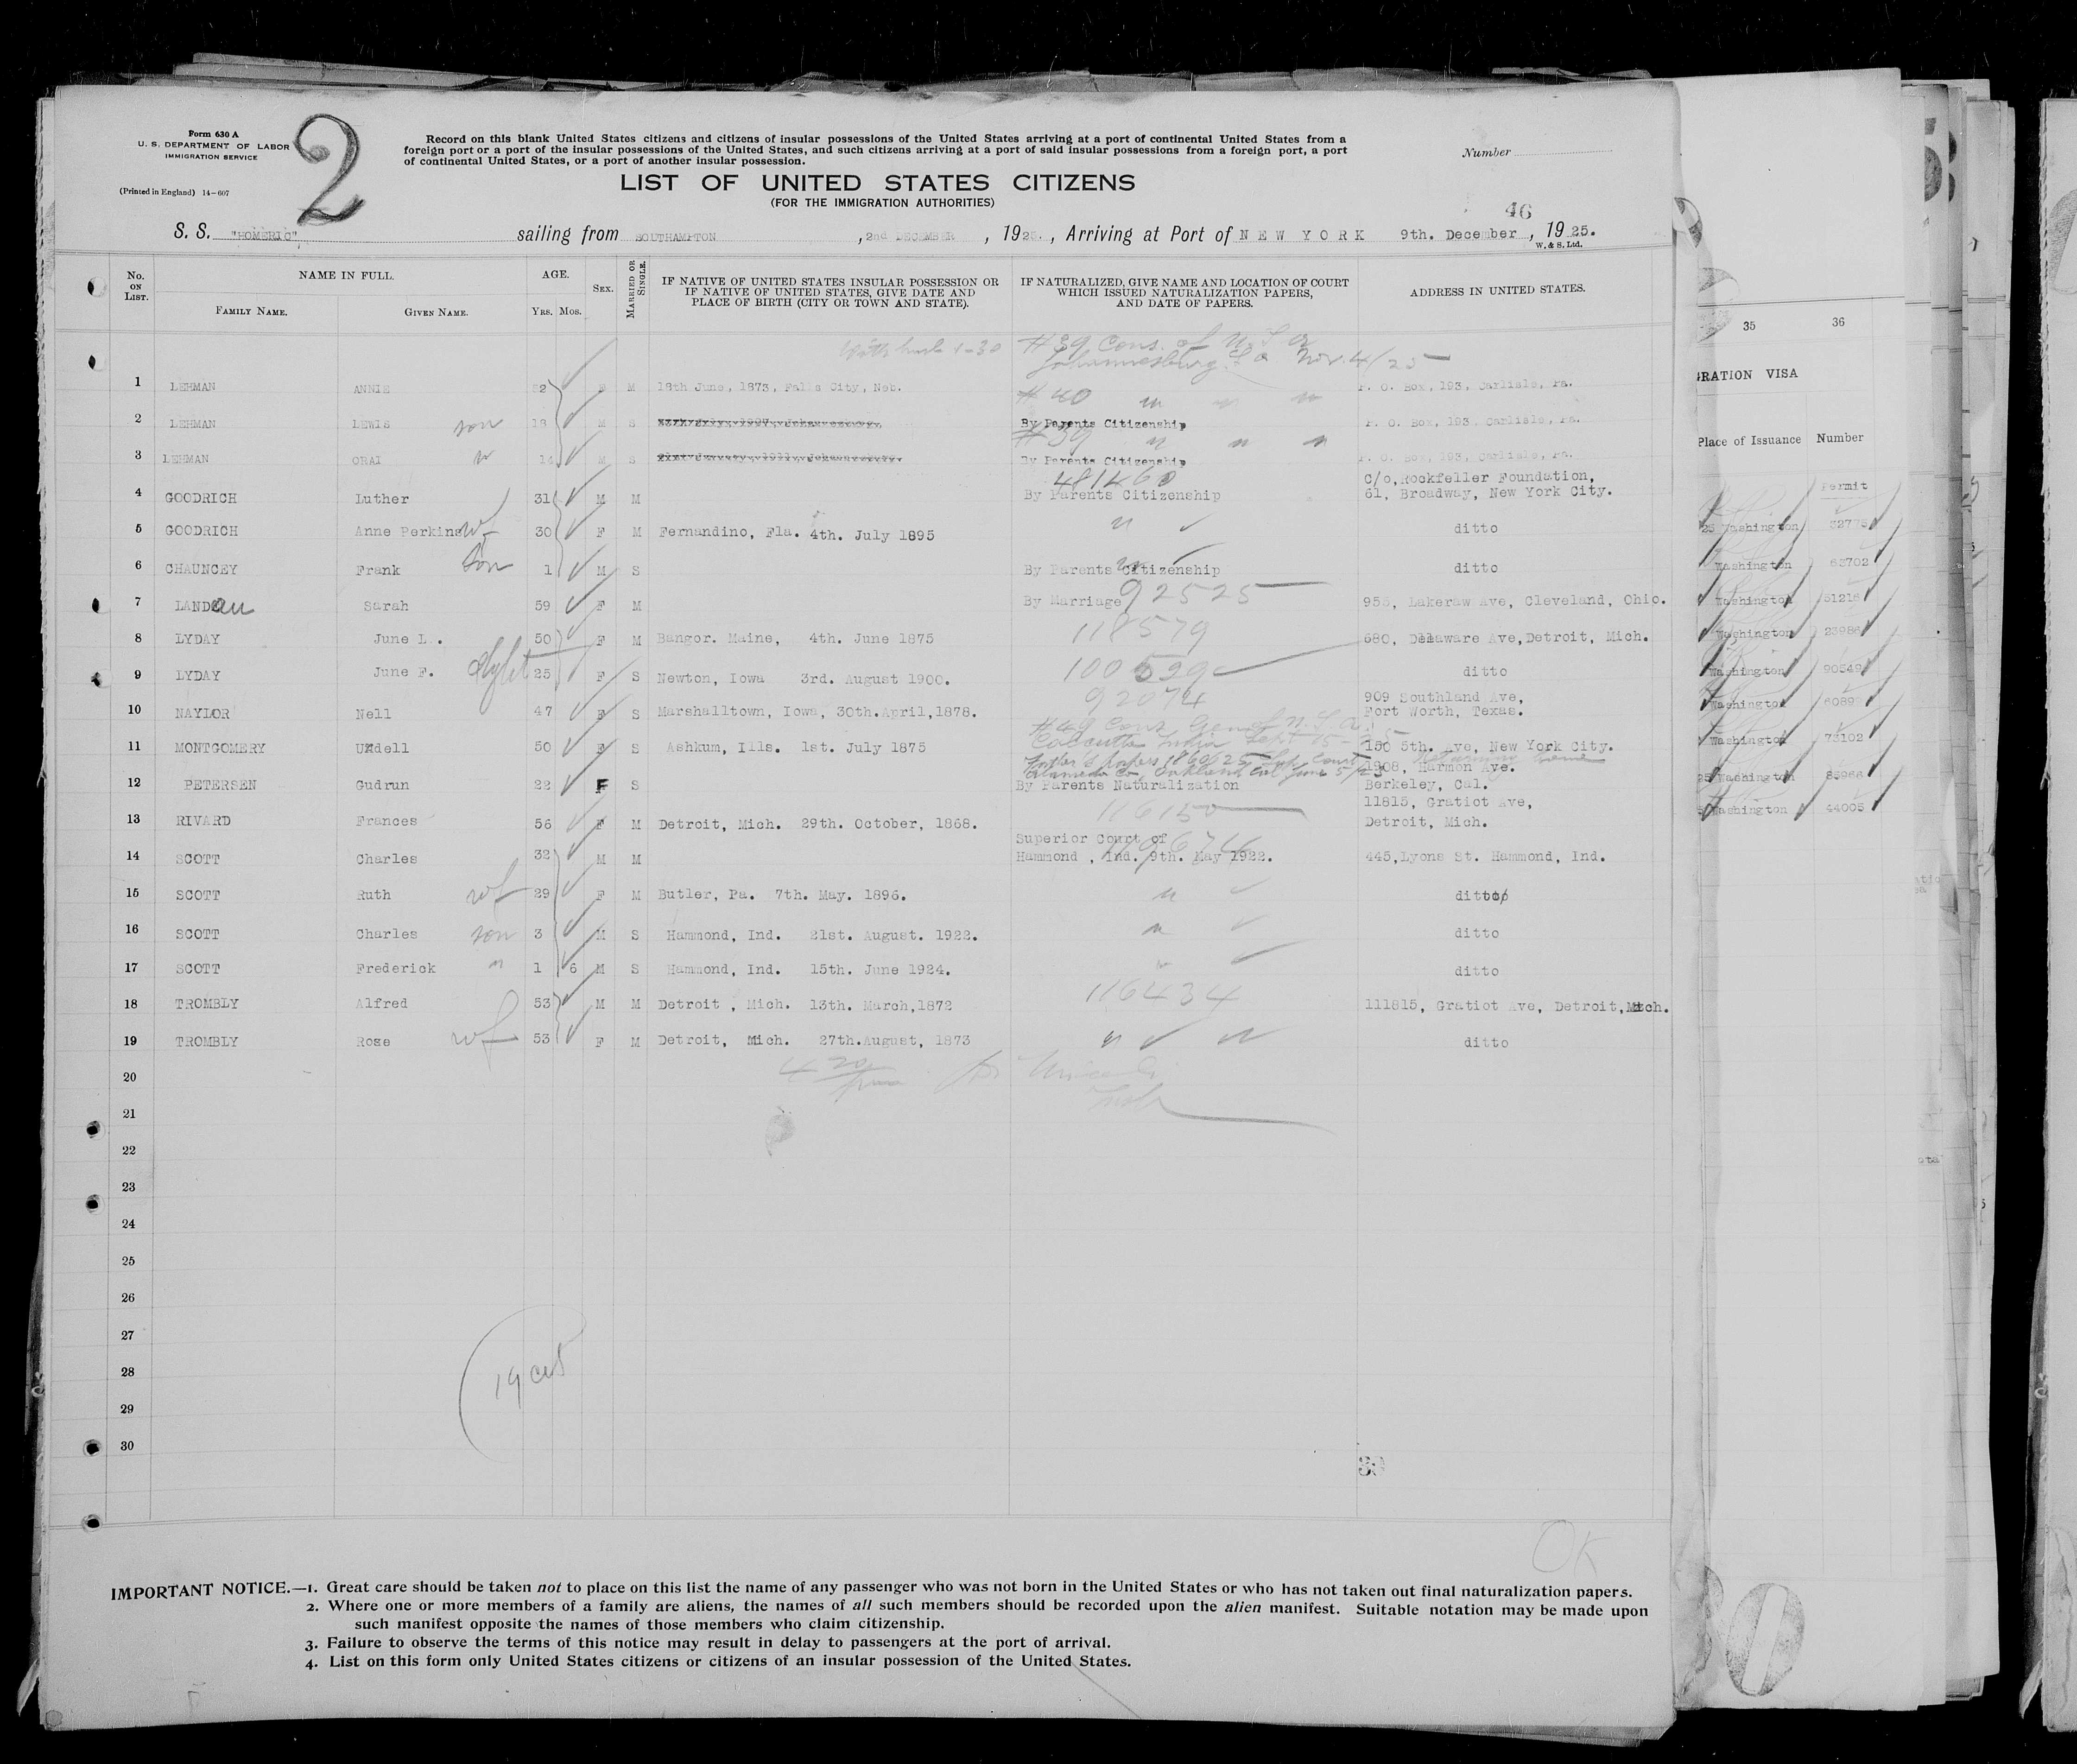 Form 630 A
U. S. DEPARTMENT OF LABOR
IMMIGRATION SERVICE
(Printed in England) 14-607
2
Record on this blank United States citizens and citizens of insular possessions of the United States arriving at a port of continental United States from a
foreign port or a port of the insular possessions of the United States, and such citizens arriving at a port of said insular possessions from a foreign port, a port
of continental United States, or a port of another insular possession.
Number
LIST OF UNITED STATES CITIZENS
(FOR THE IMMIGRATION AUTHORITIES)
46
S. S. "HOMERIC", sailing from SOUTHAMPTON, 2nd DECEMBER, 1925., Arriving at Port of NEW YORK 9th. December, 1925.
W. & S. Ltd.
No. ON LIST. NAME IN FULL. AGE. SEX. MARRIED OR SINGLE. IF NATIVE OF UNITED STATES INSULAR POSSESSION OR IF NATIVE OF UNITED STATES, GIVE DATE AND PLACE OF BIRTH (CITY OR TOWN AND STATE). IF NATURALIZED, GIVE NAME AND LOCATION OF COURT WHICH ISSUED NATURALIZATION PAPERS, AND DATE OF PAPERS. ADDRESS IN UNITED STATES.
FAMILY NAME. GIVEN NAME. YRS. MOS.
#39 Cons. of U.S.A.
Johannesburg S.A. Nov. 4/25
1 LEHMAN ANNIE 52 F M 18th June, 1873, Falls City, Neb. P. O. Box, 193, Carlisle, Pa.
#40 " " "
2 LEHMAN LEWIS son 18 M S By Parents Citizenship P. O. Box, 193, Carlisle, Pa.
#39 " " "
3 LEHMAN ORAI " 14 M S By Parents Citizenship P. O. Box, 193, Carlisle, Pa.
481460 C/o, Rockfeller Foundation,
4 GOODRICH Luther 31 M M By Parents Citizenship 61, Broadway, New York City.
5 GOODRICH Anne Perkins wf 30 F M Fernandino, Fla. 4th. July 1895 " ditto
6 CHAUNCEY Frank son 1 M S By Parents Citizenship ditto
7 LANDau Sarah 59 F M By Marriage 92525 Lakeraw Ave, Cleveland, Ohio.
8 LYDAY June L. 50 F M Bangor. Maine, 4th. June 1875 118579 680, Delaware Ave, Detroit, Mich.
9 LYDAY June F. 25 F S Newton, Iowa 3rd. August 1900. ditto
92074 909 Southland Ave,
10 NAYLOR Nell 47 F S Marshalltown, Iowa, 30th. April, 1878. Fort Worth, Texas.
#49 Cons Gen of U.S.A.
11 MONTGOMERY Undell 50 F S Ashkum, Ills. 1st. July 1875 Calcutta India 150 5th. Ave, New York City.
1908, Harmon Ave.
12 PETERSEN Gudrun 22 F S By Parents Naturalization Berkeley, Cal.
116150 11815, Gratiot Ave,
13 RIVARD Frances 56 F M Detroit, Mich. 29th. October, 1868. Detroit, Mich.
Superior Court of
14 SCOTT Charles 32 M M Hammond , Ind. 9th. May 1922. 445, Lyons St. Hammond, Ind.
15 SCOTT Ruth wf 29 F M Butler, Pa. 7th. May. 1896. " ditto
16 SCOTT Charles son 3 M S Hammond, Ind. 21st. August. 1922. " ditto
17 SCOTT Frederick " 1 6 M S Hammond, Ind. 15th. June 1924. " ditto
18 TROMBLY Alfred 53 M M Detroit , Mich. 13th. March, 1872 116434 111815, Gratiot Ave, Detroit, Mich.
19 TROMBLY Rose wf 53 F M Detroit, Mich. 27th. August, 1873 " ditto
20
21
22
23
24
25
26
27
28
19 cit
29
30
OK
IMPORTANT NOTICE.—1. Great care should be taken not to place on this list the name of any passenger who was not born in the United States or who has not taken out final naturalization papers.
2. Where one or more members of a family are aliens, the names of all such members should be recorded upon the alien manifest. Suitable notation may be made upon
such manifest opposite the names of those members who claim citizenship.
3. Failure to observe the terms of this notice may result in delay to passengers at the port of arrival.
4. List on this form only United States citizens or citizens of an insular possession of the United States.
35 36
RATION VISA
Place of Issuance Number
Permit
Washington
Washington 63702
Washington 51216
Washington 23986
Washington 90549
Washington
Washington 75102
Washington
Washington 44005